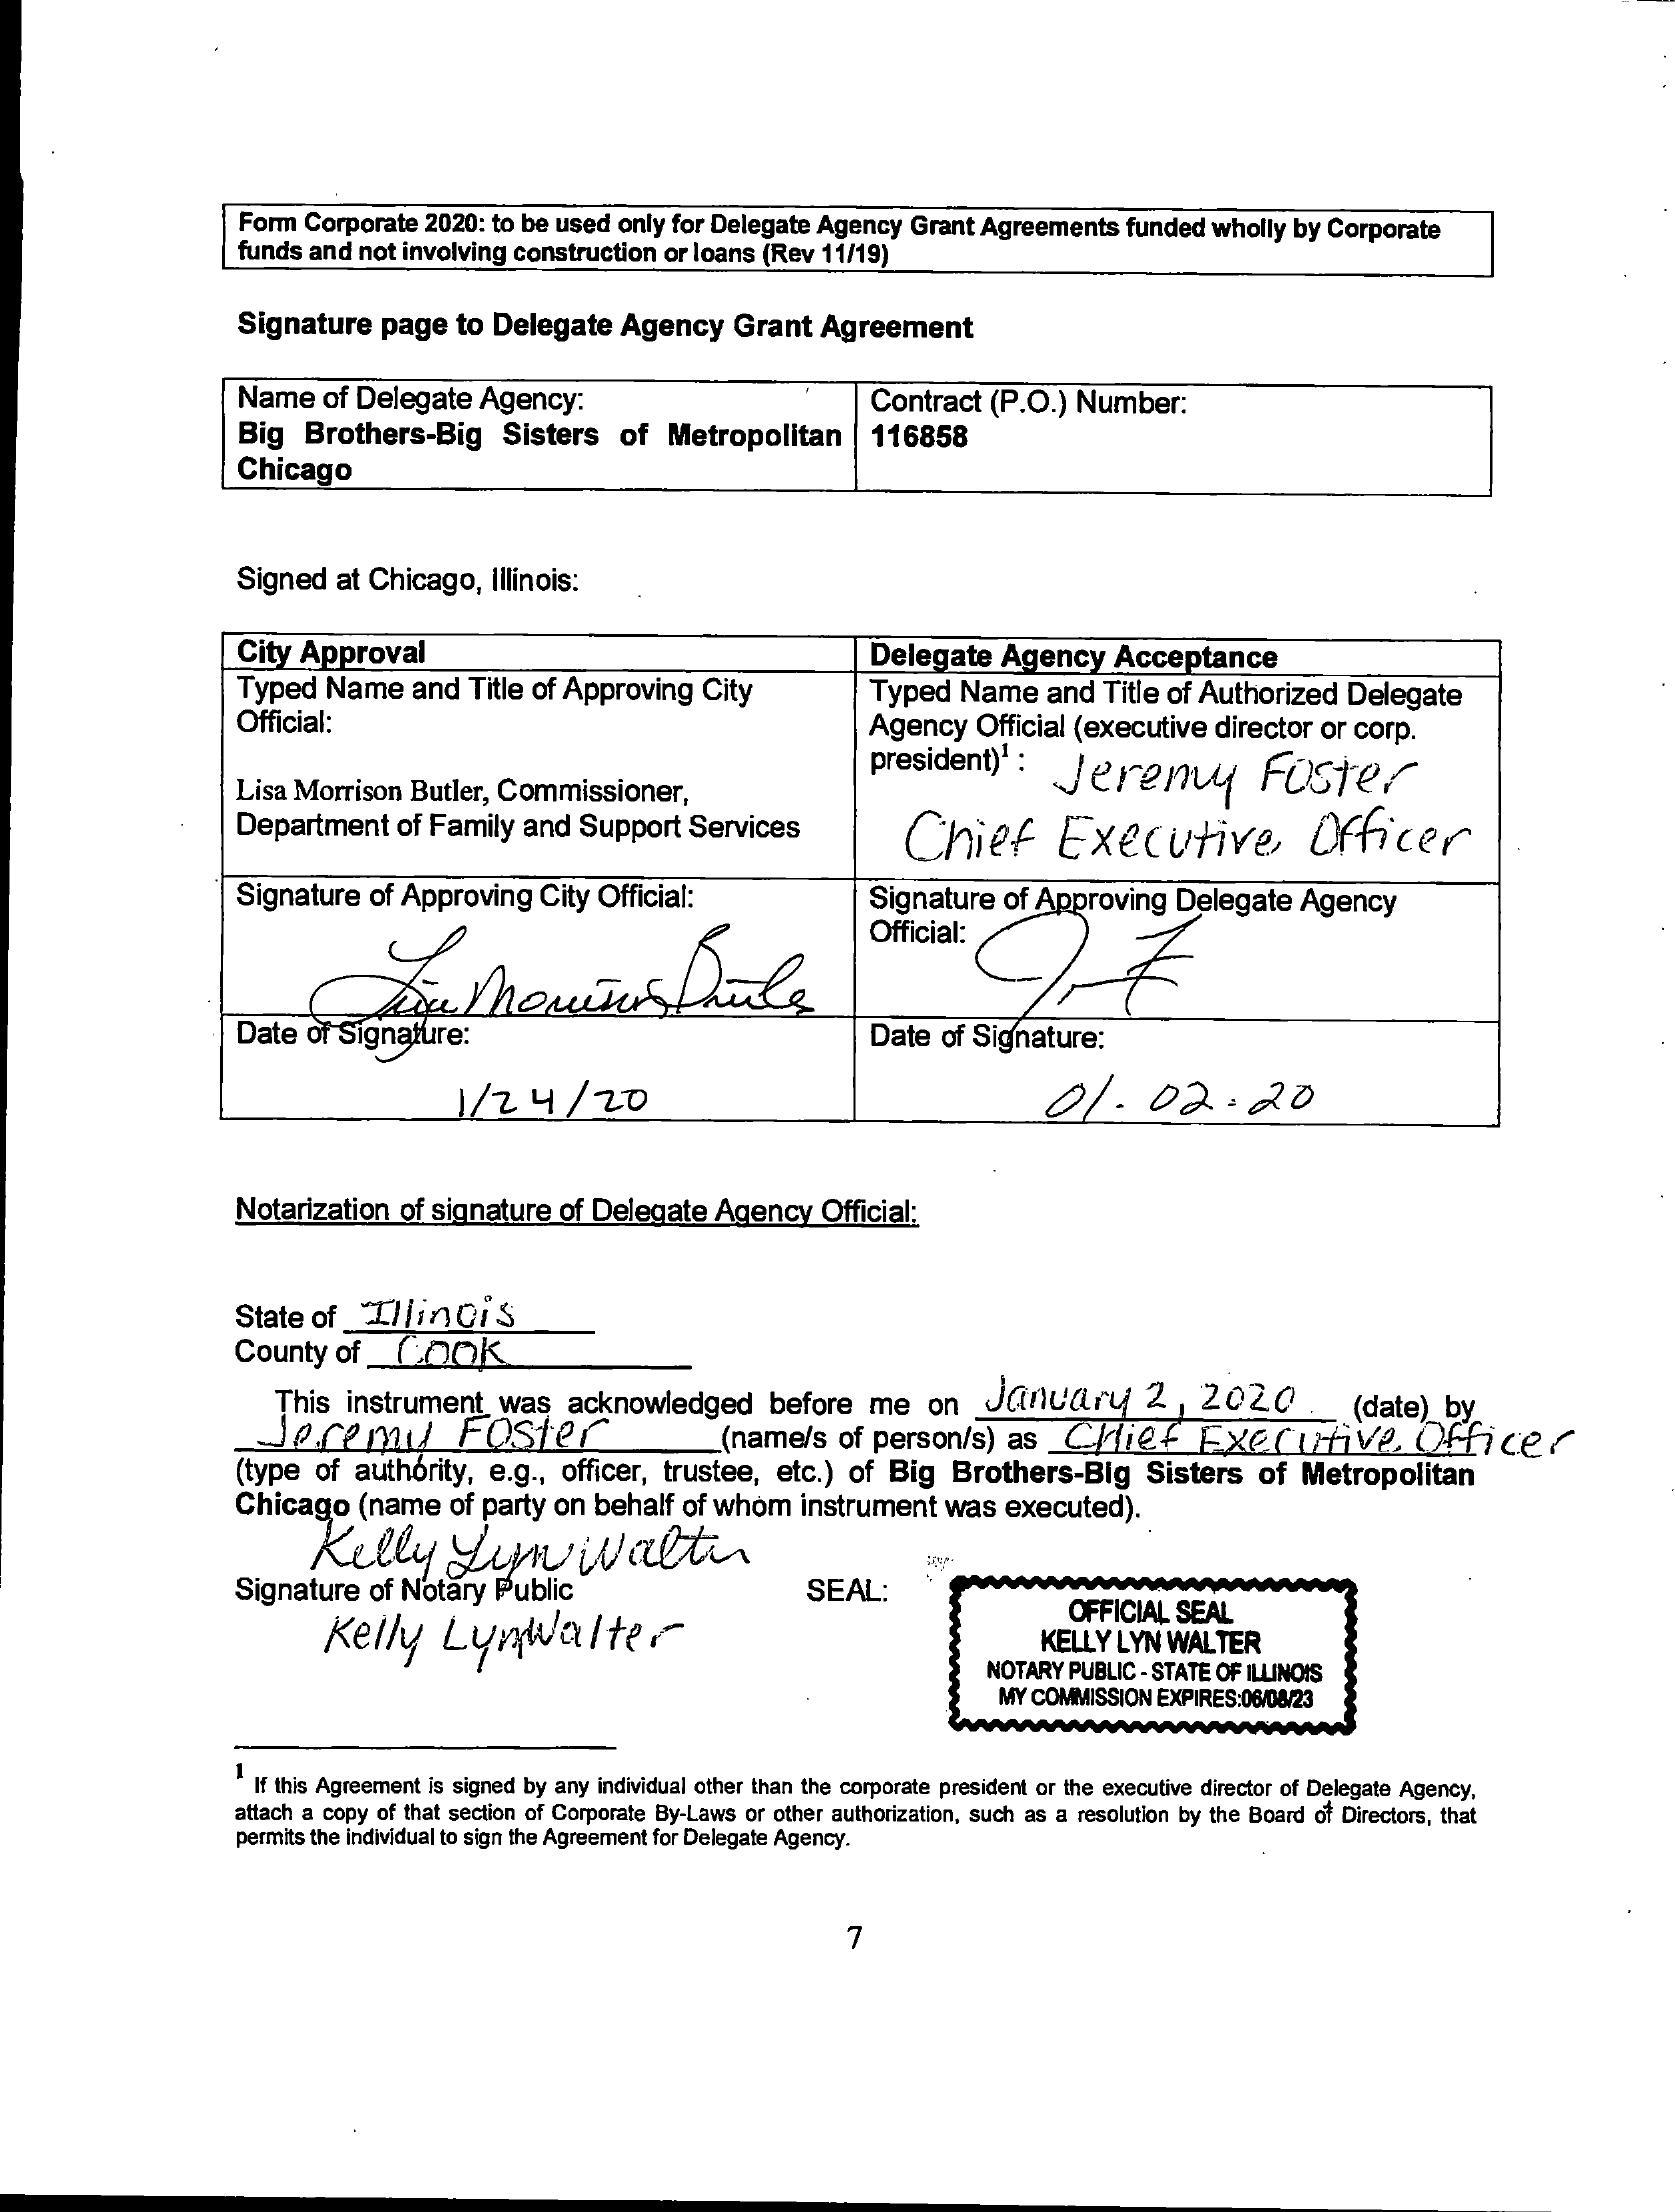 Form Corporate 2020: to be used only for Delegate Agency Grant Agreements funded wholly by Corporate
funds and not involving construction or loans (Rev 11/19)
Signature page to Delegate Agency Grant Agreement
Name of Delegate Agency:
Big Brothers-Big Sisters of Metropolitan
Chicago
Contract (P.O.) Number:
116858
Signed at Chicago, Illinois:
City Approval
Typed Name and Title of Approving City
Official:
Lisa Morrison Butler, Commissioner,
Department of Family and Support Services
Delegate Agency Acceptance
Typed Name and Title of Authorized Delegate
Agency Official (executive director or corp.
president)¹ : Jeremy Foster
Chief Executive Officer
Signature of Approving City Official:
Lisa Morrison Butler
Signature of Approving Delegate Agency
Official:
Date of Signature:
1/24/20
Date of Signature:
01.02.20
Notarization of signature of Delegate Agency Official:
State of Illinois
County of Cook
This instrument was acknowledged before me on January 2, 2020 (date) by
Jeremy Foster (name/s of person/s) as Chief Executive Officer
(type of authority, e.g., officer, trustee, etc.) of Big Brothers-Big Sisters of Metropolitan
Chicago (name of party on behalf of whom instrument was executed).
Kelly Lyn Walter
Signature of Notary Public
Kelly Lyn Walter
SEAL:
OFFICIAL SEAL
KELLY LYN WALTER
NOTARY PUBLIC - STATE OF ILLINOIS
MY COMMISSION EXPIRES:06/08/23
1 If this Agreement is signed by any individual other than the corporate president or the executive director of Delegate Agency,
attach a copy of that section of Corporate By-Laws or other authorization, such as a resolution by the Board of Directors, that
permits the individual to sign the Agreement for Delegate Agency.
7